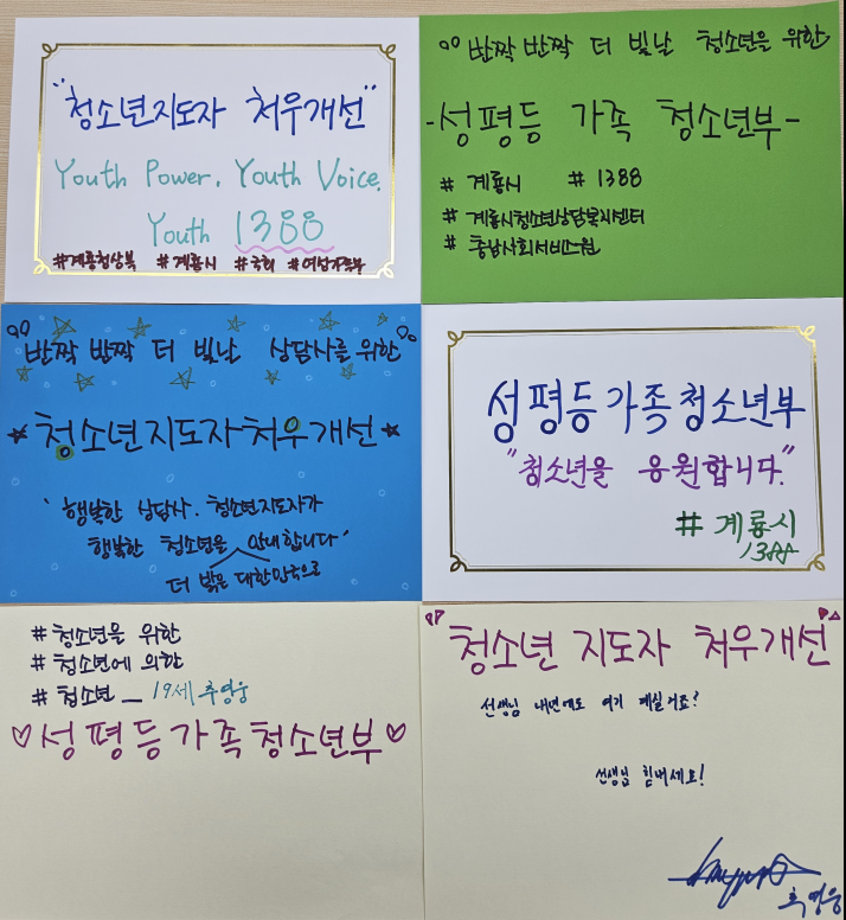 "청소년지도자 처우개선"
Youth Power. Youth Voice.
Youth 1388
#계룡청상복 #계룡시 #국회 #여성가족부
반짝 반짝 더 빛날 청소년을 위한
-성평등 가족 청소년부-
# 계룡시 # 1388
# 계룡시청소년상담복지센터
# 충남사회서비스원
"반짝 반짝 더 빛날 상담사를 위한"
청소년지도자처우개선
'행복한 상담사. 청소년지도자가
행복한 청소년을 안내합니다'
더 밝은 대한민국으로
성평등가족청소년부
"청소년을 응원합니다."
# 계룡시
1388
#청소년을 위한
#청소년에 의한
#청소년 _ 19세 추영웅
♡성평등가족청소년부♡
"청소년 지도자 처우개선"
선생님 내년에도 여기 계실거죠?
선생님 힘내세요!
추영웅